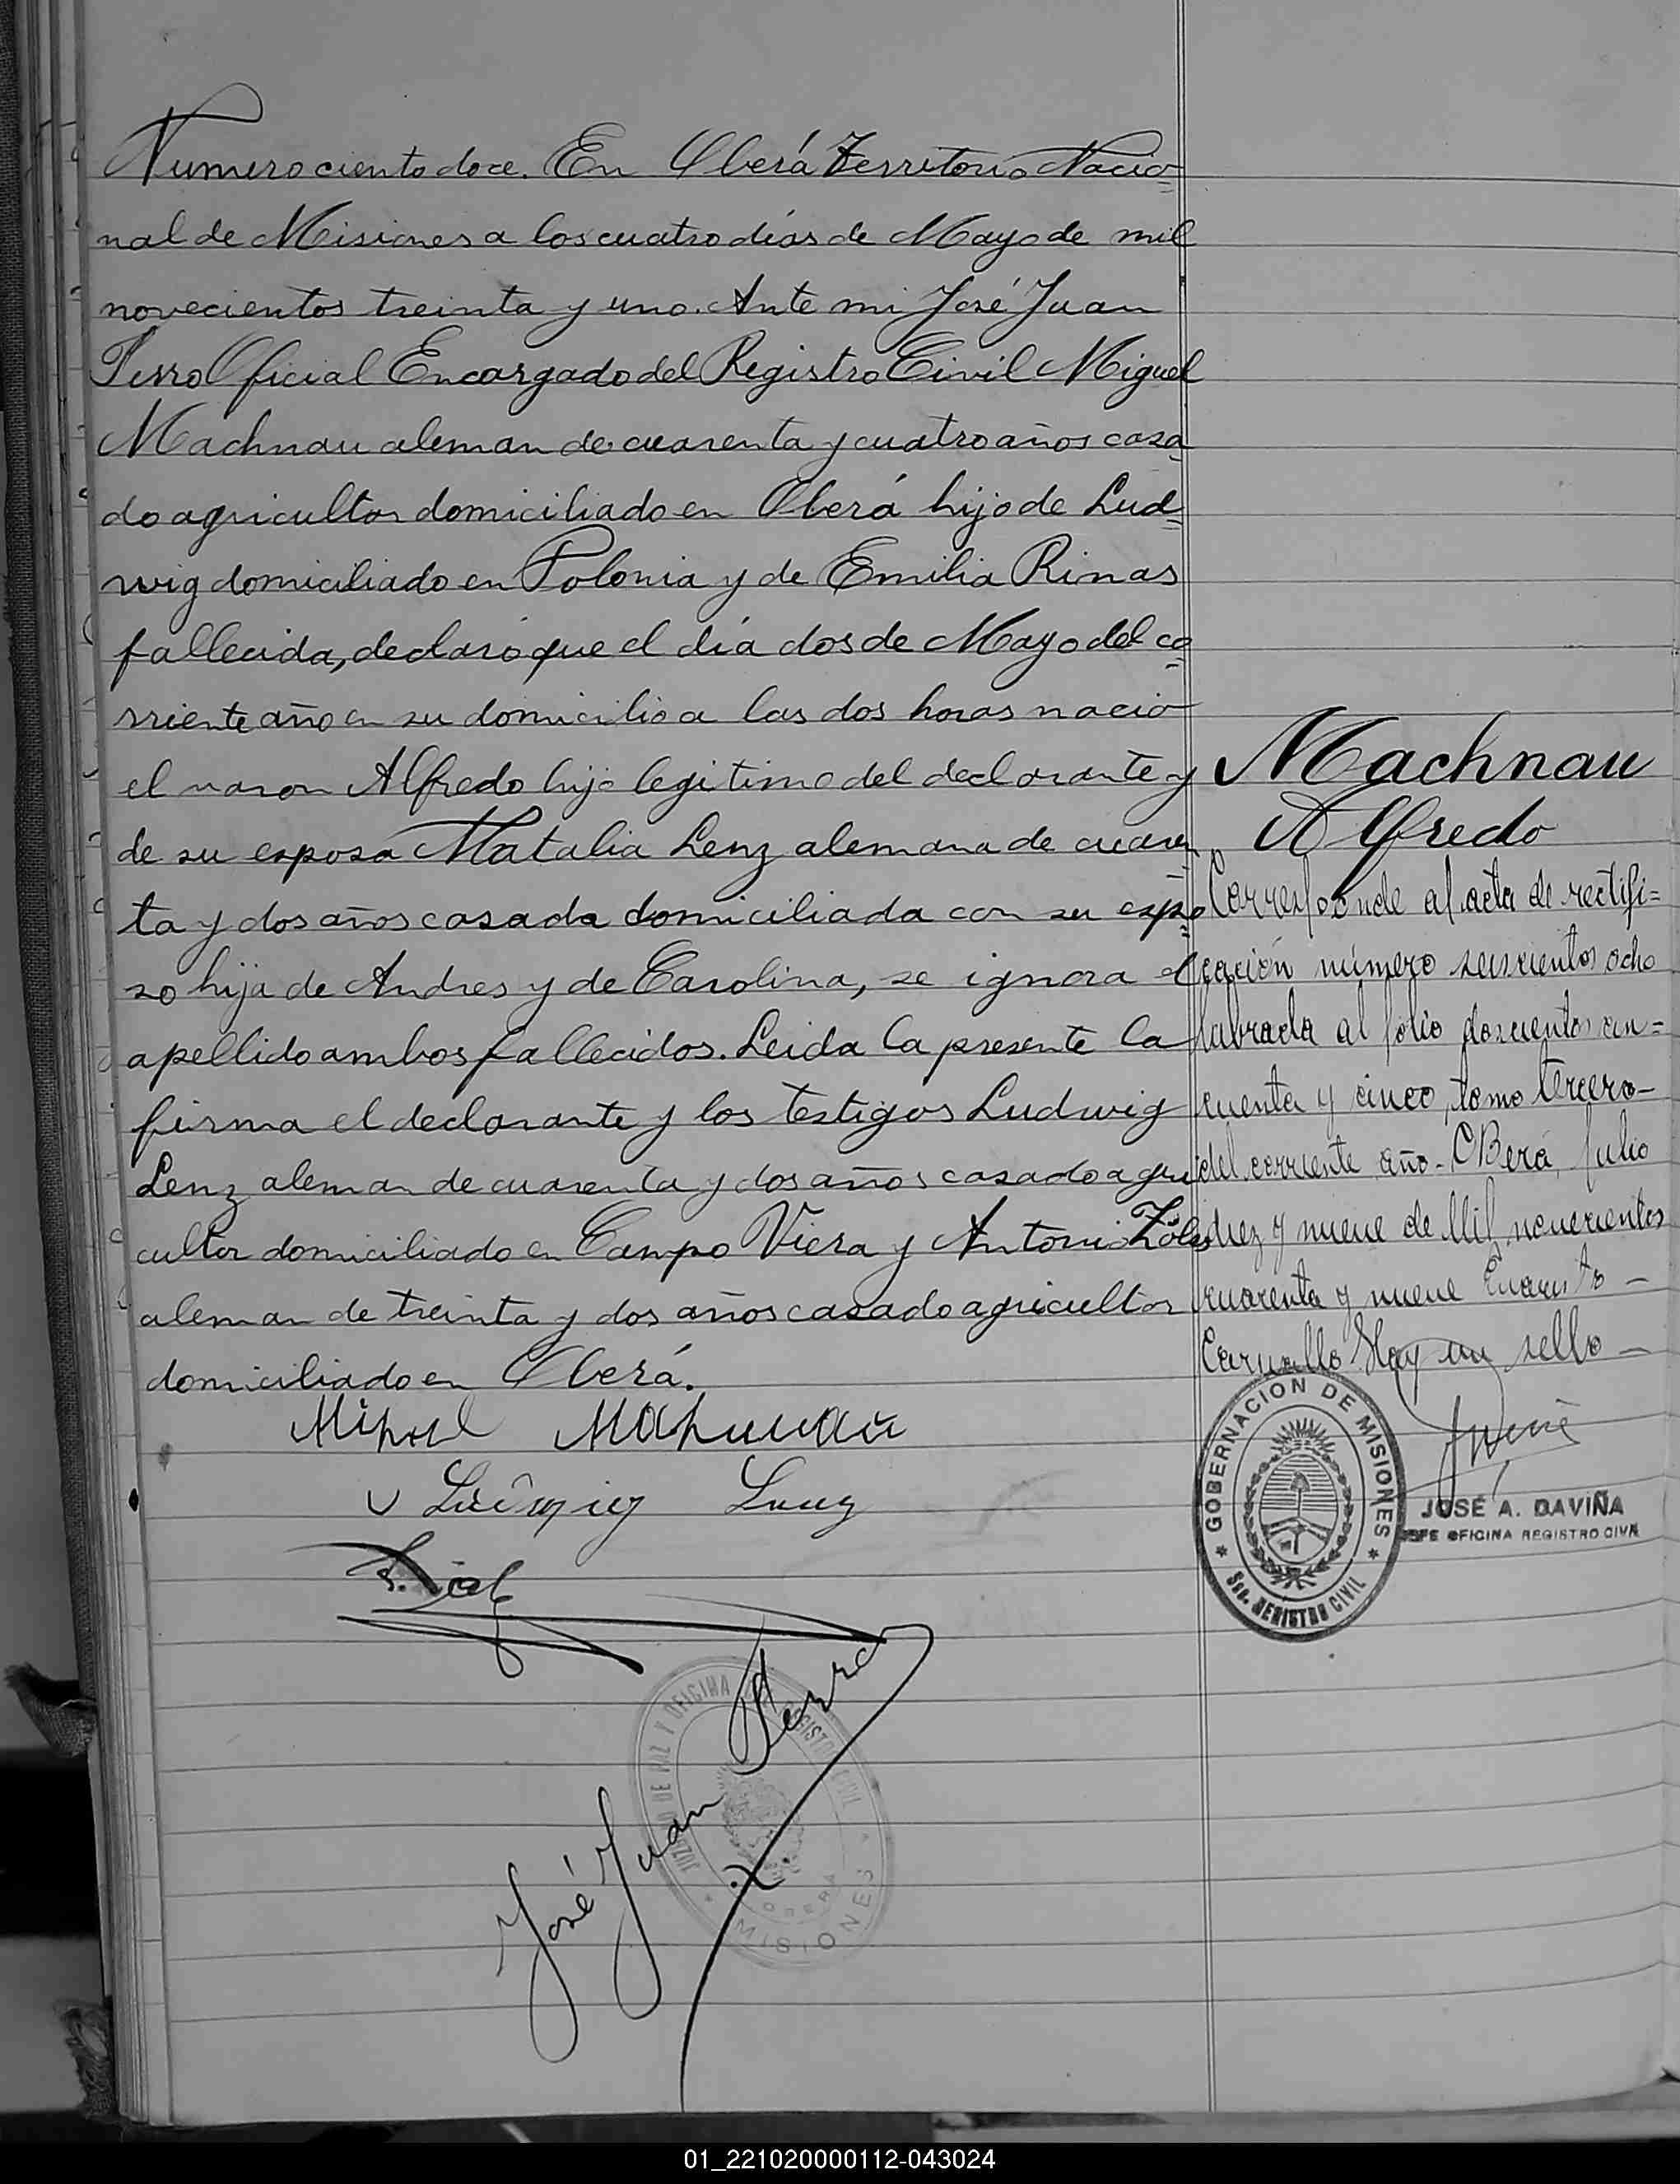 Numero ciento doce. En Oberá Territorio Nacio
nal de Misiones a los cuatro días de Mayo de mil
novecientos treinta y uno. Ante mi José Juan
Perro Oficial Encargado del Registro Civil Miguel
Machnau aleman de cuarenta y cuatro años casa
do agricultor domiciliado en Oberá hijo de Lud
wig domiciliado en Polonia y de Emilia Rinas
fallecida, declaró que el día dos de Mayo del co
rriente año en su domicilio a las dos horas nació
el varon Alfredo hijo legitimo del declarante y
de su esposa Natalia Lenz alemana de cuaren
ta y dos años casada domiciliada con su espo
so hija de Andres y de Carolina, se ignora el
apellido ambos fallecidos. Leida la presente la
firma el declarante y los testigos Ludwig
Lenz aleman de cuarenta y dos años casado agri
cultor domiciliado en Campo Viera y Antonio
aleman de treinta y dos años casado agricultor
domiciliado en Oberá.
Machnau
Alfredo
Corresponde al acta de rectifi=
cación número seiscientos ocho
labrada al folio doscientos cin=
cuenta y cinco, tomo tercero-
del corriente año - OBerá, Julio
diez y nueve de Mil novecientos
cuarenta y nueve Evaristo -
Carvallo Hay un sello -
GOBERNACION DE MISIONES
Sec. REGISTRO CIVIL
JOSÉ A. DAVIÑA
JEFE OFICINA REGISTRO CIVIL
José Juan Perro
JUZGADO DE PAZ Y OFICINA DEL REGISTRO CIVIL
OBERA
MISIONES
01_221020000112-043024